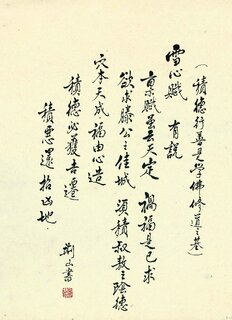 (積德行善是學佛修道之基)
雪心賦 有説
稟賦雖云天定 禍福是己求
欲求滕公之佳城 須積叔敖之陰德
穴本天成福由心造
積德必獲吉遷
積惡還招凶地
荊山書